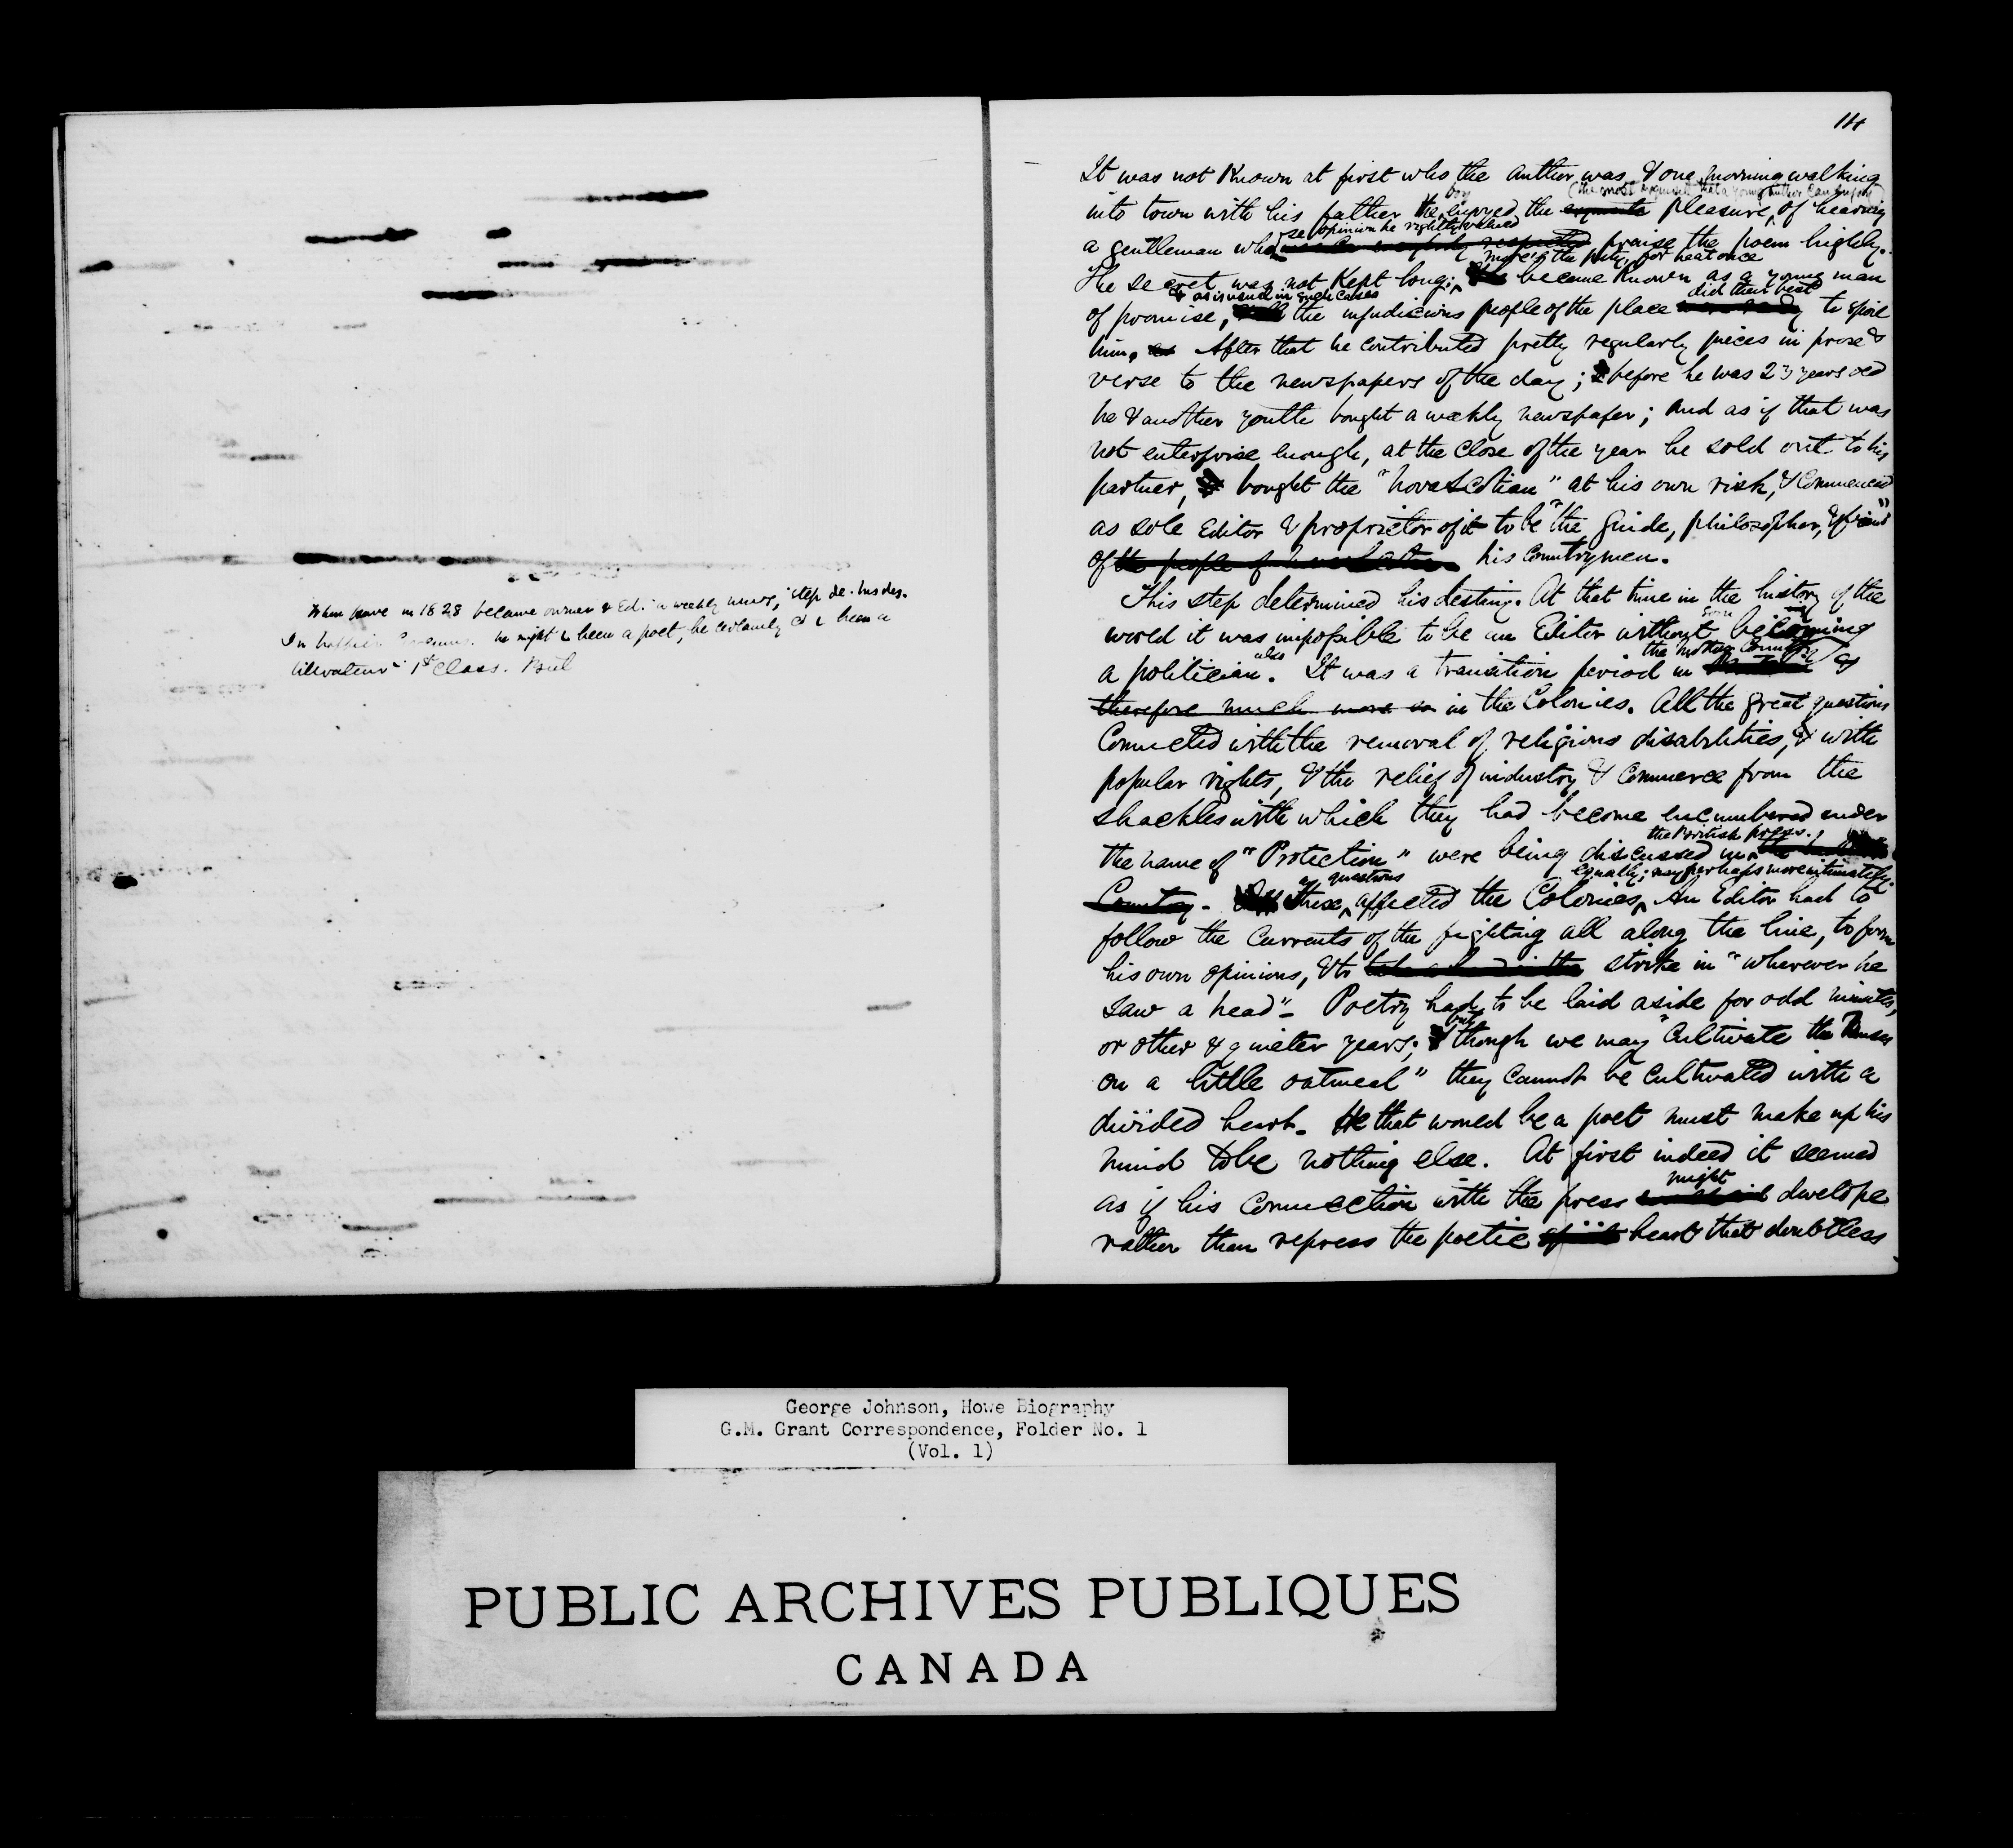 When Howe in 1828 became owner & Ed. a weekly newsp, step de. his des.
he might been a poet, he certainly been a
litterateur 1st Class. But
14
It was not Known at first who the author was, & one morning walking
boy (the most exquisite that a young author can enjoy)
into town with his father the enjoyed the exquisite pleasure of hearing
se opinion he rightly valued
a gentleman who praise the poem highly.
more's the pity, for he at once
The secret was not Kept long; became Known as a young man
& as is usual in such cases did their best
of promise, the injudicious people of the place were ready to spoil
him. After that he contributed pretty regularly pieces in prose &
verse to the newspapers of the day; before he was 23 years old
he & another youth bought a weekly newspaper; and as if that was
not enterprise enough, at the close of the year he sold out to his
partner, bought the "Nova Scotian" at his own risk, & commenced
as sole Editor & proprietor of it to be "the guide, philosopher, & friend"
of the people of Nova Scotia his Countrymen.
This step determined his destiny. At that time in the history of the
soon
world it was impossible to be an Editor without becoming
also the Mother Country &
a politician. It was a transition period in as
therefore much more so in the Colonies. All the great questions
Connected with the removal of religious disabilities, & with
popular rights, & the relief of industry & Commerce from the
shackles with which they had become encumbered under
the British press.
the name of "Protection" were being discussed in
questions equally; nay perhaps more intimately.
Country. these affected the Colonies. An Editor had to
follow the Currents of the fighting all along the line, to form
his own opinions, & to strike in "wherever he
saw a head". Poetry had to be laid aside for odd minutes,
but
or other & quieter years; though we may "Cultivate the Muses
on a little oatmeal" they cannot be cultivated with a
divided heart. He that would be a poet must make up his
mind to be nothing else. At first indeed it seemed
might
as if his Connection with the press develope
rather than repress the poetic spirit heart that doubtless
George Johnson, Howe Biography
G.M. Grant Correspondence, Folder No. 1
(Vol. 1)
PUBLIC ARCHIVES PUBLIQUES
CANADA